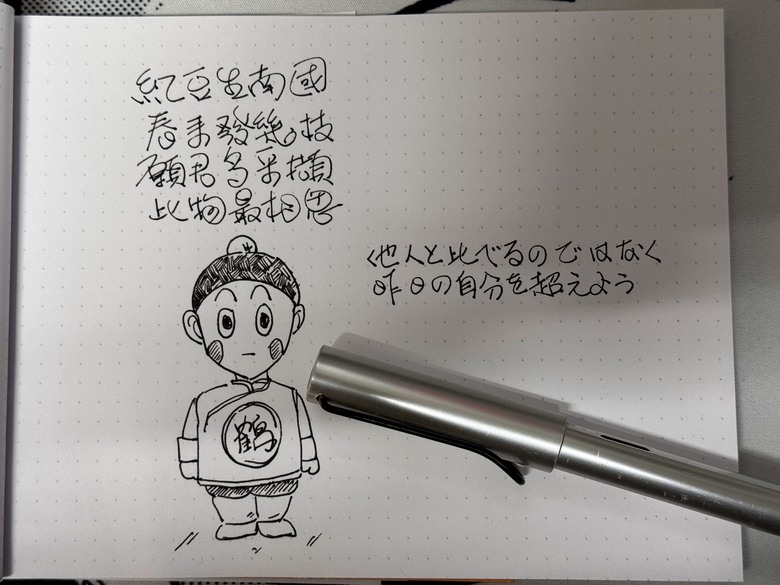 紅豆生南國
春来發幾枝
願君多采擷
此物最相思
他人と比べるのではなく
昨日の自分を超えよう
鶴